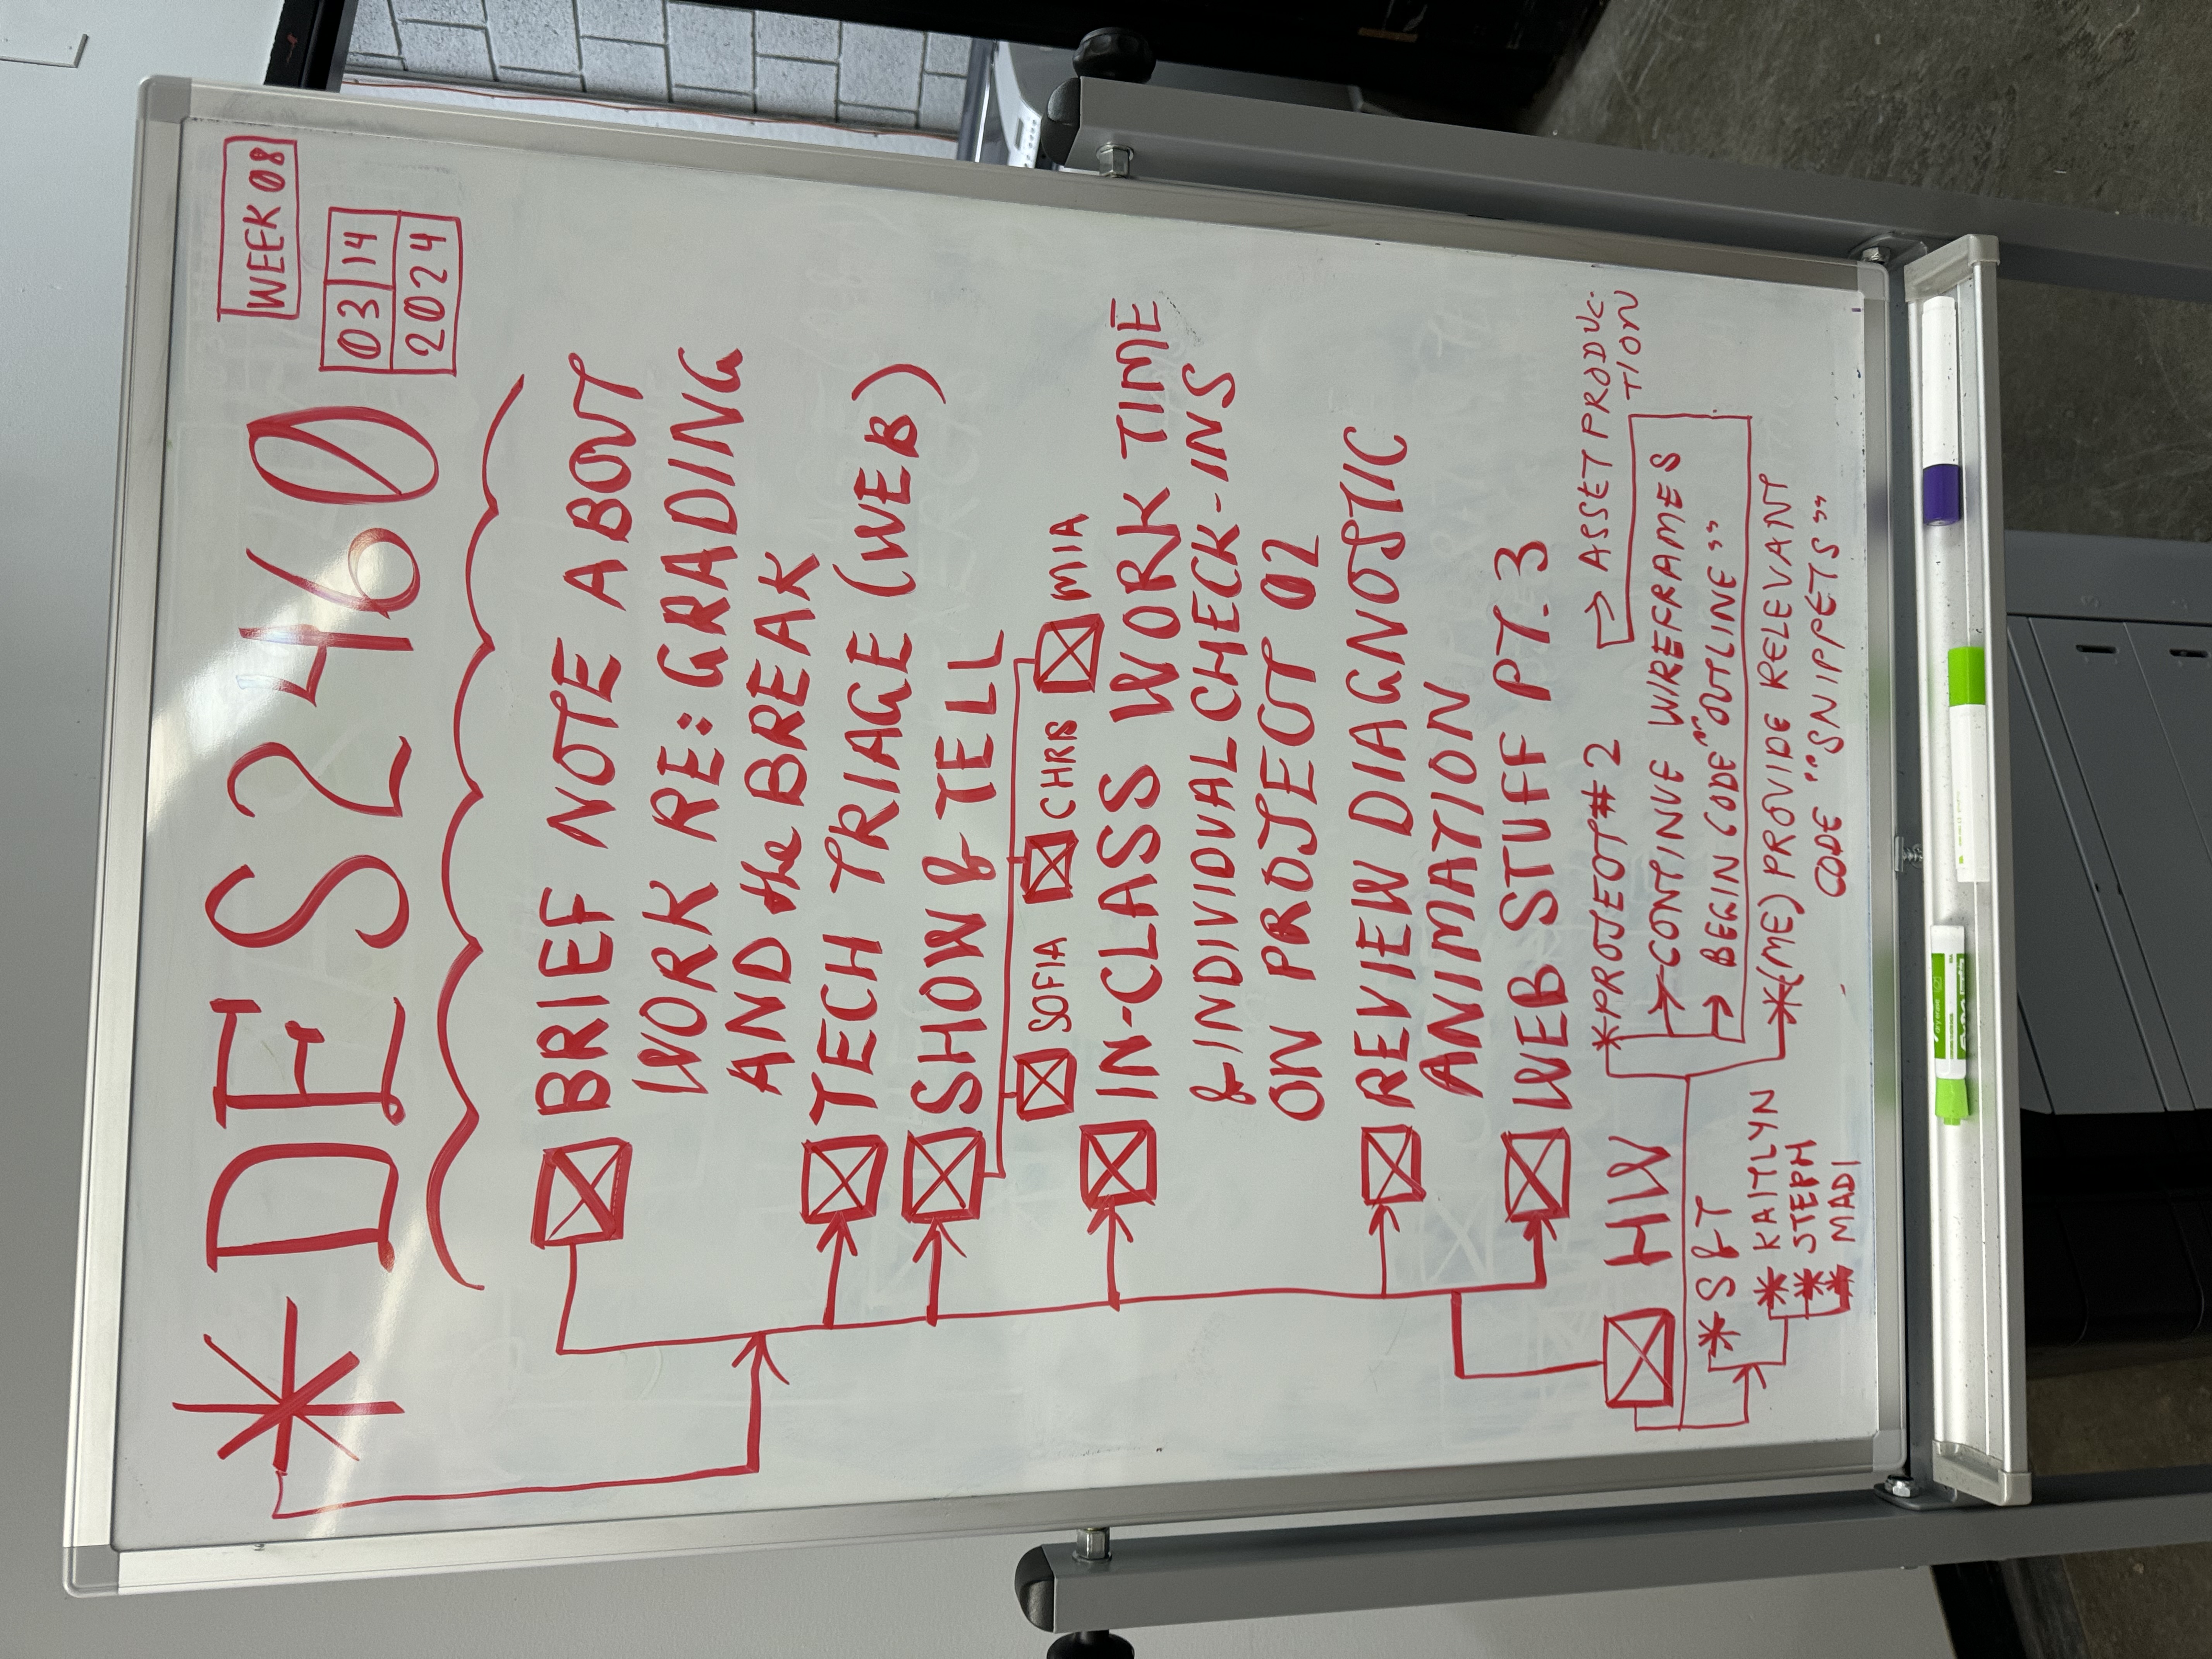 *DES2460
WEEK 08
03 14
2024
BRIEF NOTE ABOUT
WORK RE: GRADING
AND the BREAK
TECH TRIAGE (WEB)
SHOW & TELL
SOFIA CHRB MIA
IN-CLASS WORK TIME
& INDIVIDUAL CHECK-INS
ON PROJECT 02
REVIEW DIAGNOSTIC
ANIMATION
WEB STUFF PT.3
HW
*S&T
*KAITLYN
*STEPH
*MADI
*PROJECT#2
→CONTINUE WIREFRAMES
→BEGIN CODE "OUTLINE"
→ASSET PRODUC-
TION
*(ME) PROVIDE RELEVANT
CODE "SNIPPETS"